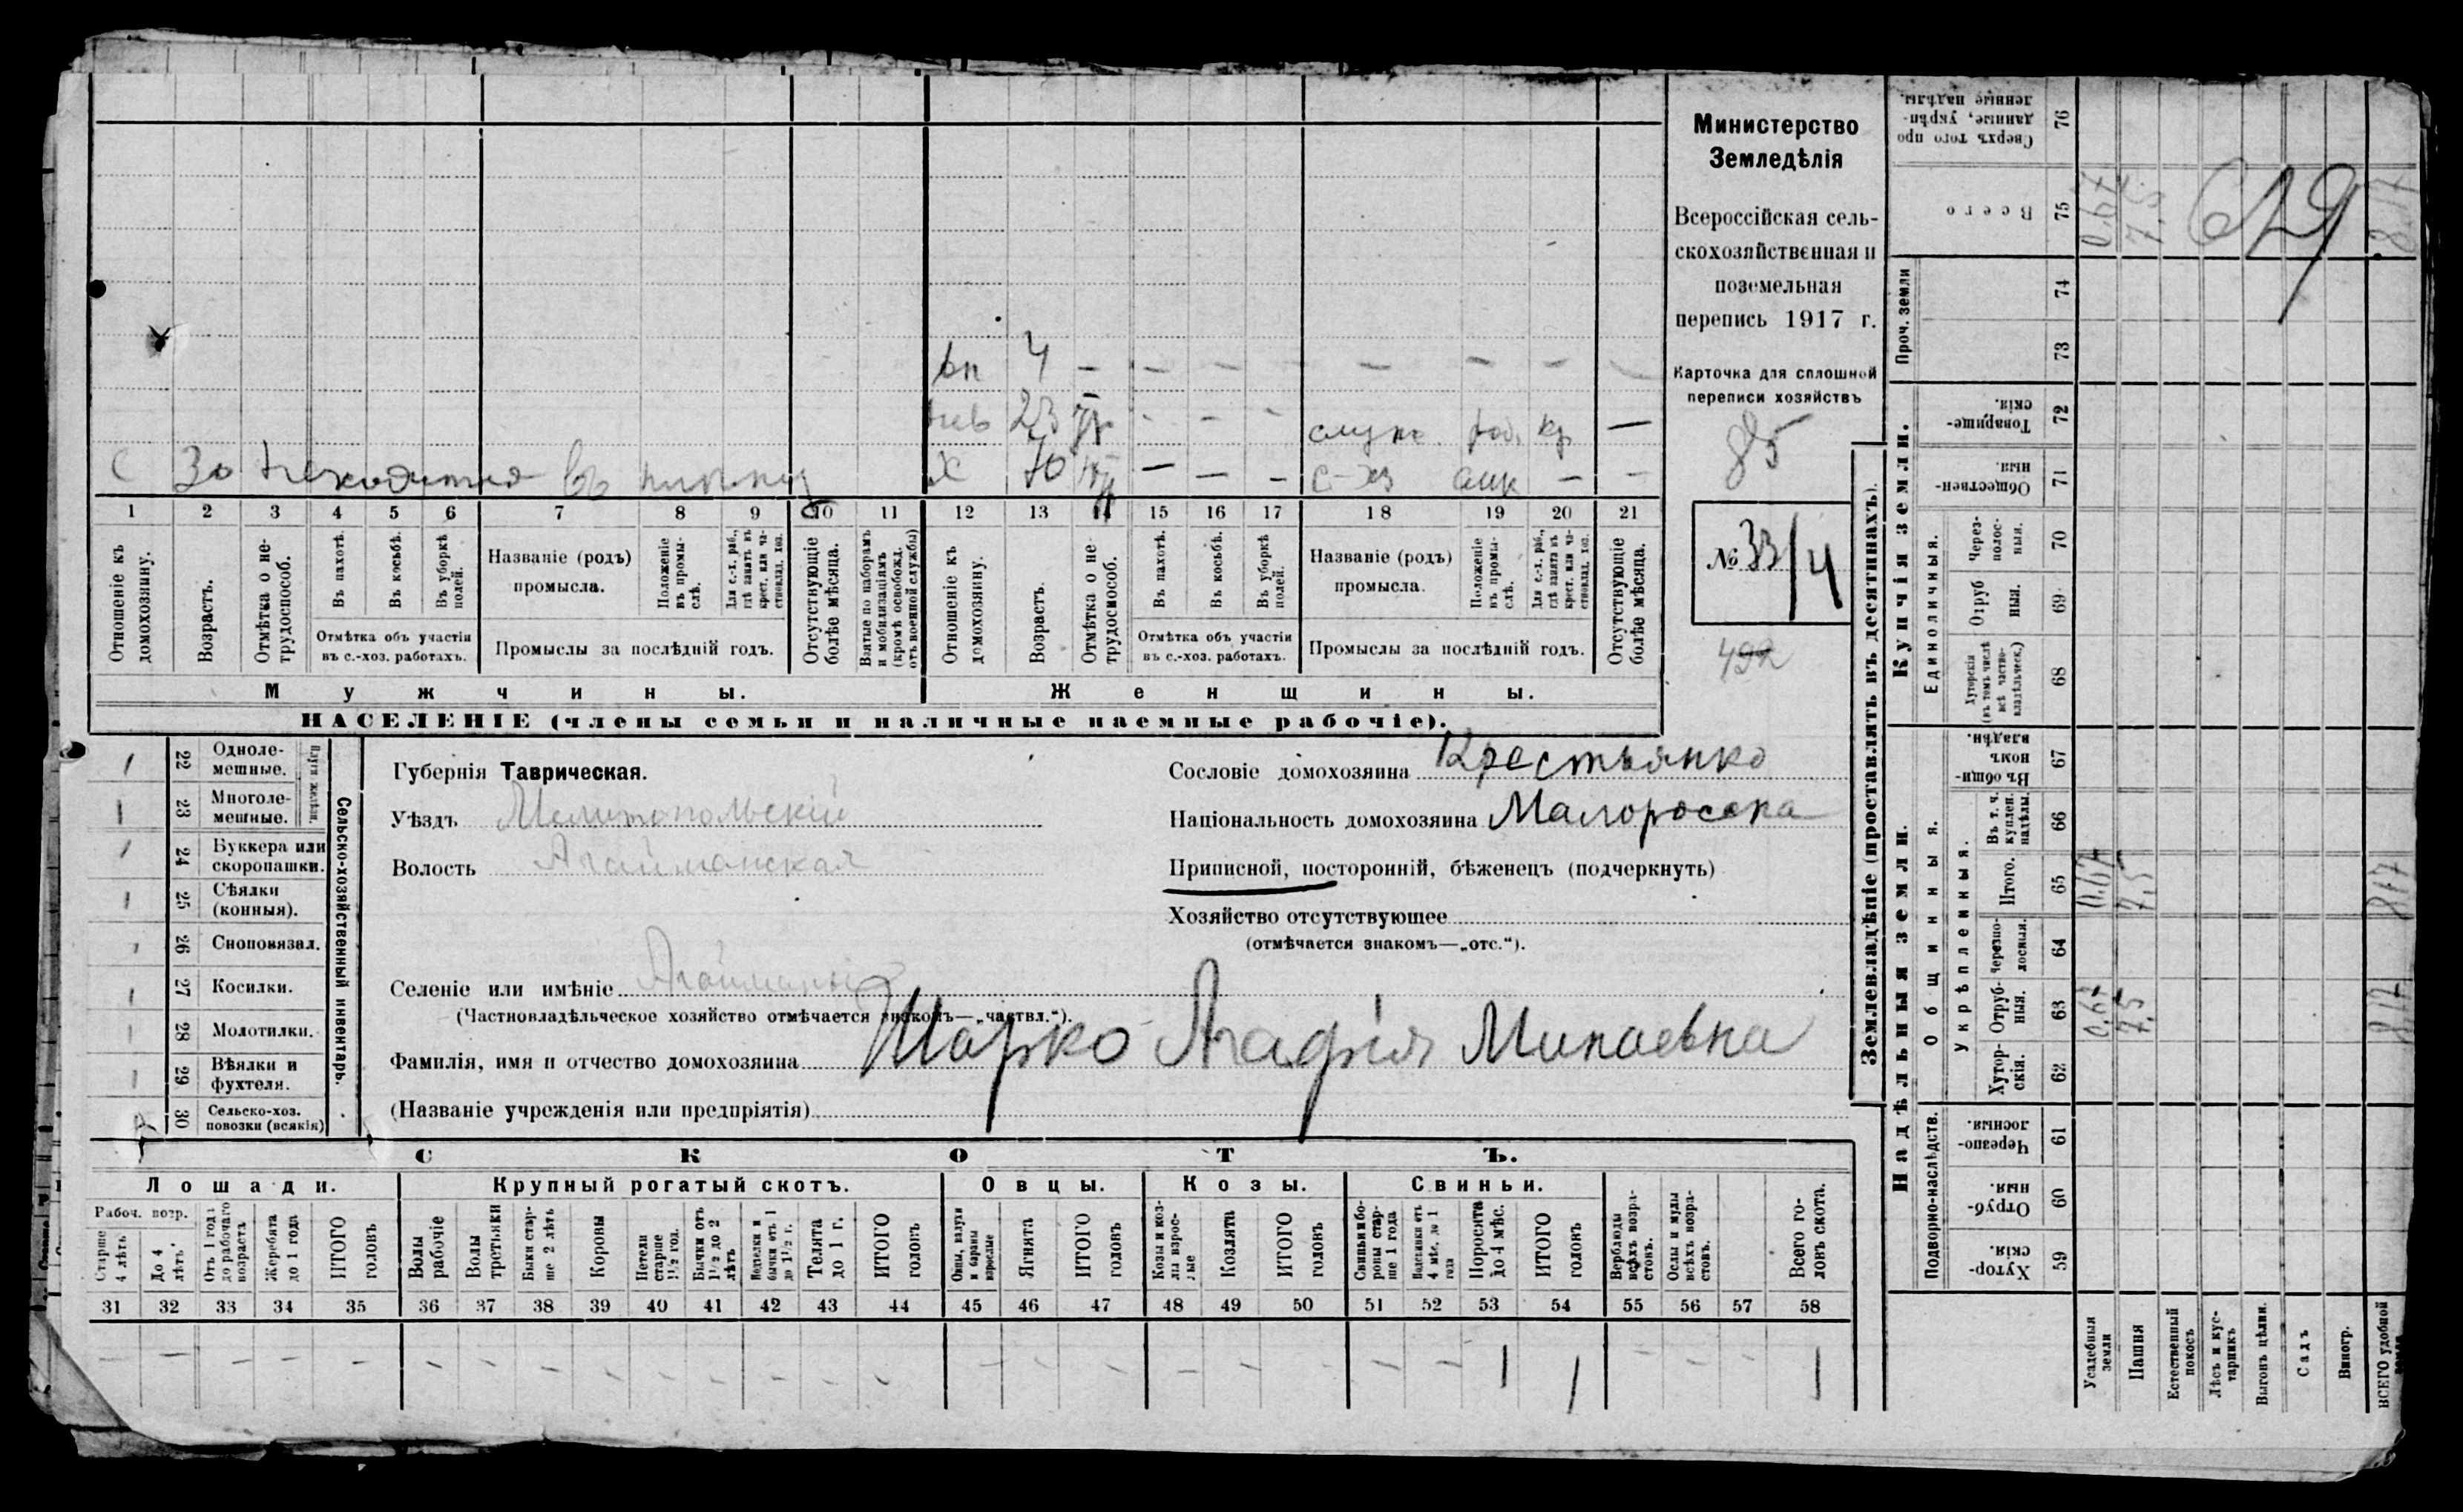 Министерство
Земледѣлія
Всероссійская сель-
скохозяйственная и
поземельная
перепись 1917 г.
Карточка для сплошной
переписи хозяйствъ
85
№ 33/4
492
вн 4 — — — — — — — —
нев 23 — — — служ. раб. кр. —
С 30 находится в плену
Х 70 — — — с-хз — —
1 2 3 4 5 6 7 8 9 10 11 12 13 14 15 16 17 18 19 20 21
Отношеніе къ домохозяину.
Возрастъ.
Отмѣтка о не-трудоспособ.
Въ пахотѣ.
Въ косьбѣ.
Въ уборкѣ полей.
Отмѣтка объ участіи
въ с.-хоз. работахъ.
Названіе (родъ)
промысла.
Положеніе въ промы-слѣ.
Для с.-х. раб., гдѣ занятъ въ крест. или ча-стновлад. хоз.
Промыслы за послѣдній годъ.
Отсутствующіе болѣе мѣсяца.
Взятые по наборамъ и мобилизаціямъ (кромѣ освобожд. отъ военной службы)
Отношеніе къ домохозяину.
Возрастъ.
Отмѣтка о не-трудоспособ.
Въ пахотѣ.
Въ косьбѣ.
Въ уборкѣ полей.
Отмѣтка объ участіи
въ с.-хоз. работахъ.
Названіе (родъ)
промысла.
Положеніе въ промы-слѣ.
Для с.-х. раб., гдѣ занятъ въ крест. или ча-стновлад. хоз.
Промыслы за послѣдній годъ.
Отсутствующіе болѣе мѣсяца.
Мужчины.
Женщины.
НАСЕЛЕНІЕ (члены семьи и наличные наемные рабочіе).
Сельско-хозяйственный инвентарь.
Плуги желѣзн.
22 Одноле-мешные.
23 Многоле-мешные.
24 Буккера или скоропашки.
25 Сѣялки (конныя).
26 Сноповязал.
27 Косилки.
28 Молотилки.
29 Вѣялки и фухтеля.
30 Сельско-хоз. повозки (всякія)
Губернія Таврическая.
Уѣздъ Мелитопольскій
Волость Агайманская
Селеніе или имѣніе Агайманы
(Частновладѣльческое хозяйство отмѣчается знакомъ—„частвл.“).
Фамилія, имя и отчество домохозяина Шарко Агафія Минаевна
(Названіе учрежденія или предпріятія)
Сословіе домохозяина Крестьянка
Національность домохозяина Малоросска
Приписной, посторонній, бѣженецъ (подчеркнуть)
Хозяйство отсутствующее
(отмѣчается знакомъ—„отс.“).
СКОТЪ.
Лошади.
Крупный рогатый скотъ.
Овцы.
Козы.
Свиньи.
Рабоч. возр.
Старше 4 лѣтъ
До 4 лѣтъ
Отъ 1 года до рабочаго возраста
Жеребята до 1 года
ИТОГО головъ
Волы рабочіе
Волы третьяки
Быки стар-ше 2 лѣтъ
Коровы
Нетели старше 1½ год.
Бычки отъ 1½ до 2 лѣтъ
Подтелки и бычки отъ 1 до 1½ г.
Телята до 1 г.
ИТОГО головъ
Овцы, валухи и бараны взрослые
Ягнята
ИТОГО головъ
Козы и коз-лы взрос-лые
Козлята
ИТОГО головъ
Свиньи и бо-ровы стар-ше 1 года
Подсвинки отъ 4 мѣс. до 1 года
Поросята до 4 мѣс.
ИТОГО головъ
Верблюды всѣхъ возра-стовъ.
Ослы и мулы всѣхъ возра-стовъ.
Всего го-ловъ скота.
31 32 33 34 35 36 37 38 39 40 41 42 43 44 45 46 47 48 49 50 51 52 53 54 55 56 57 58
— — — — — — — — — — — — — — — — — — — — 1 1 — — — 1
Землевладѣніе (проставлять въ десятинахъ).
Надѣльныя земли.
Купчія земли.
Проч. земли
Подворно-наслѣдств.
Общинныя.
Укрѣпленныя.
Единоличныя.
59 Хутор-скія.
60 Отруб-ныя.
61 Черезпо-лосныя.
62 Хутор-скія.
63 Отруб-ныя. 0,67 7,5 8,17
64 Черезпо-лосныя.
65 Итого. 0,67 7,5 8,17
66 Въ т. ч. куплен. надѣлы.
67 Въ общи-номъ владѣн.
68 Хуторскія (въ томъ числѣ всѣ частно-владѣльческ.)
69 Отруб ныя.
70 Через-полос-ныя.
71 Обществен-ныя.
72 Товарище-скія.
73
74
75 Всего 0,67 7,5 8,17
76 Сверхъ того про данные, укрѣп-ленные надѣлы.
Усадебныя земли
Пашня
Естественный покосъ
Лѣсъ и кус-тарникъ
Выгонъ цѣлин.
Садъ
Виногр.
ВСЕГО удобной